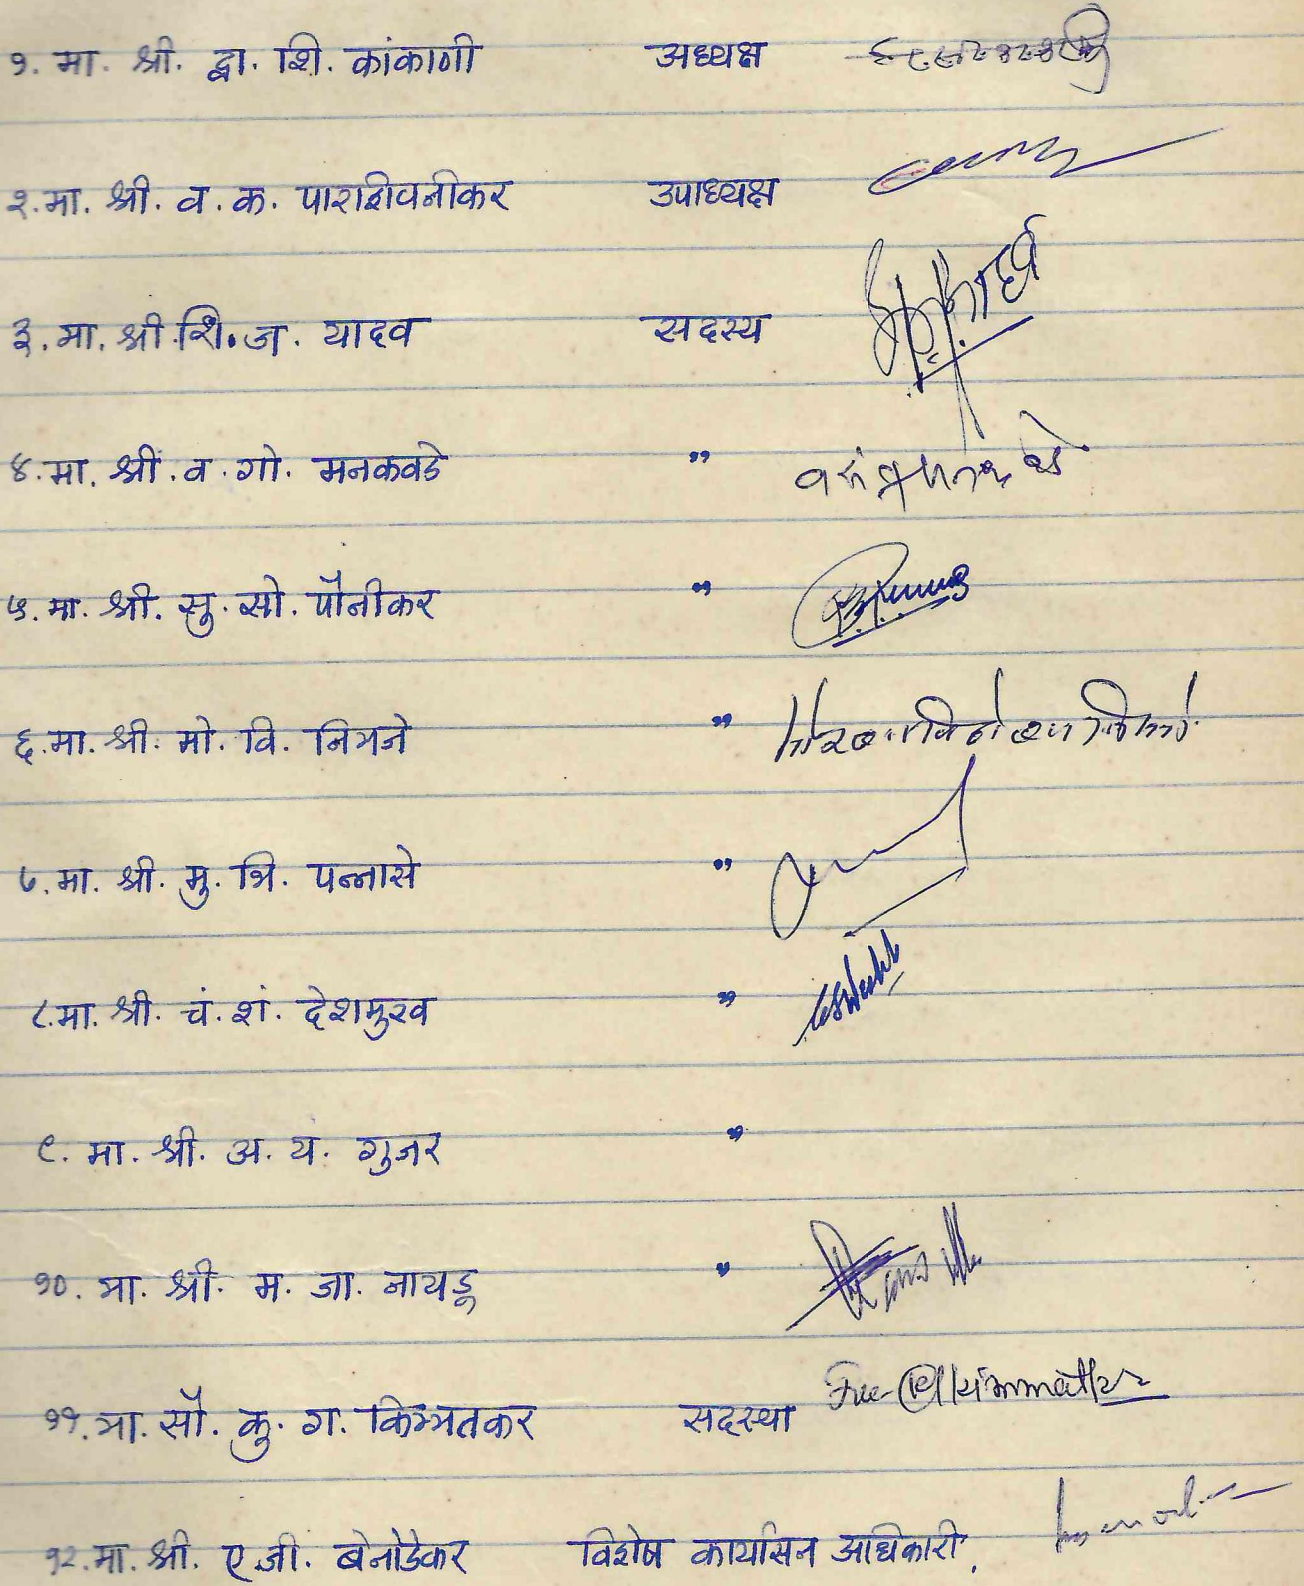 १. मा. श्री. द्वा. शि. कांकाणी अध्यक्ष
२. मा. श्री. व. क. पाराशीवनीकर उपाध्यक्ष
३. मा. श्री. शि. ज. यादव सदस्य
४. मा. श्री. व. गो. मनकवडे "
५. मा. श्री. सु. सो. पौनीकर "
६. मा. श्री. मो. वि. निमजे "
७. मा. श्री. मु. त्रि. पन्नासे "
८. मा. श्री. चं. शं. देशमुख "
९. मा. श्री. अ. य. गुजर "
१०. मा. श्री. म. जा. नायडू "
११. मा. सौ. कु. ग. किम्मतकर सदस्या
१२. मा. श्री. ए. जी. बेनोडेकर विशेष कार्यासन अधिकारी.